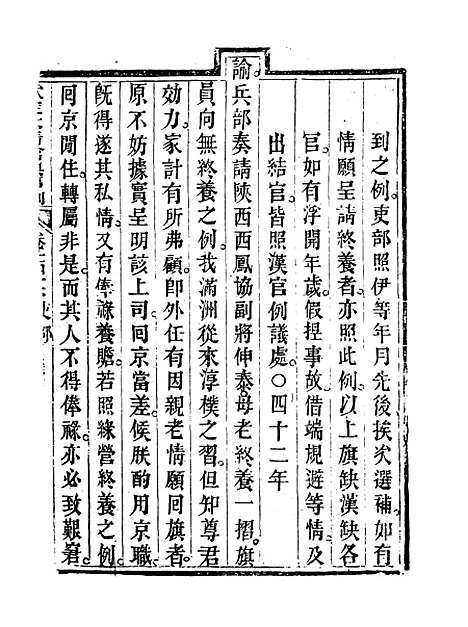 到之例吏部照伊等年月先後挨次選補如有
情願呈請終養者亦照此例以上旗缺漢缺各
官如有浮開年歲假捏事故借端規避等情及
出結官皆照漢官例議處○四十二年
諭兵部奏請陝西西鳳協副將伸泰母老終養一摺旗
員向無終養之例我滿洲從來淳樸之習但知尊君
效力家計有所弗顧卽外任有因親老情願回旗者
原不妨據實呈明該上司回京當差候朕酌用京職
旣得遂其私情又有俸祿養贍若照綠營終養之例
回京閒住轉屬非是而其人不得俸祿亦必致艱窘